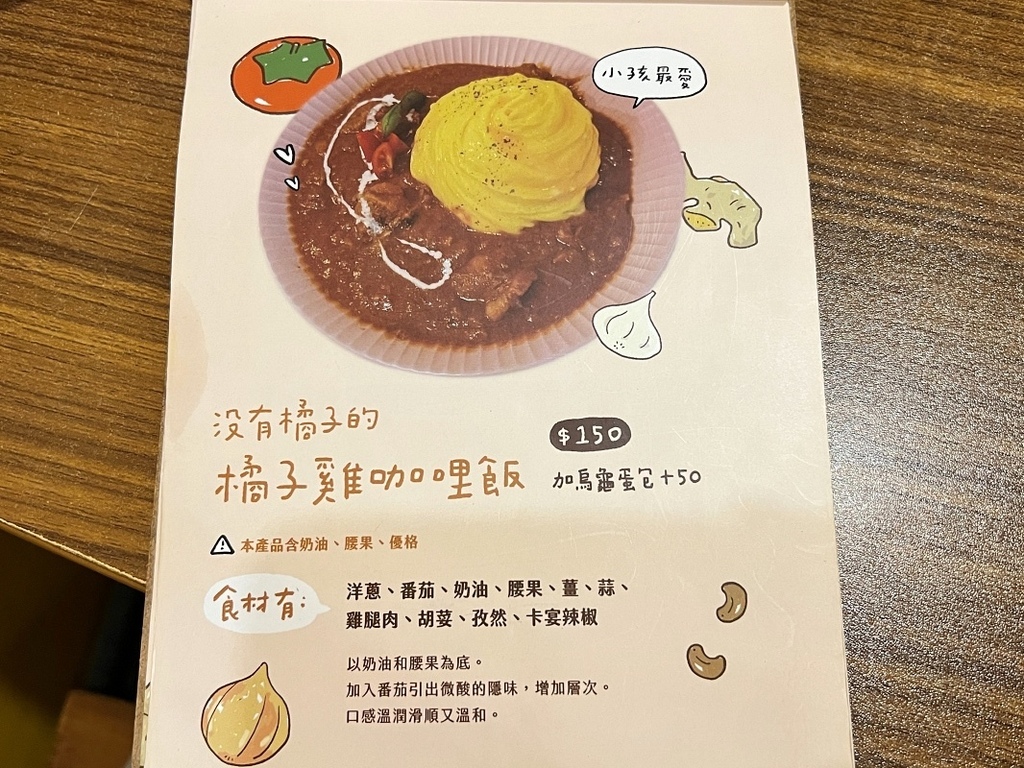 小孩最愛
沒有橘子的
橘子雞咖哩飯
$150
加烏龜蛋包+50
本產品含奶油、腰果、優格
食材有:
洋蔥、番茄、奶油、腰果、薑、蒜、
雞腿肉、胡荽、孜然、卡宴辣椒
以奶油和腰果為底。
加入番茄引出微酸的隱味，增加層次。
口感溫潤滑順又溫和。